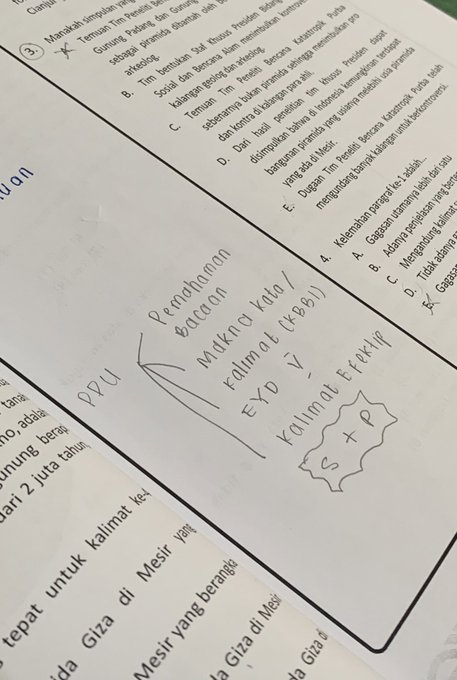 3. Manakah simpulan yang
A. Temuan Tim Peneliti
Gunung Padang dan Gunung
sebagai piramida dibantah oleh
arkeolog.
B. Tim bentukan Staf Khusus Presiden Bidang
Sosial dan Bencana Alam menimbulkan
kalangan geolog dan arkeolog.
C. Temuan Tim Peneliti Bencana Katastropik Purba
sebenarnya bukan piramida sehingga menimbulkan pro
dan kontra di kalangan para ahli.
D. Dari hasil penelitian tim khusus Presiden dapat
disimpulkan bahwa di Indonesia kemungkinan terdapat
bangunan piramida yang usianya melebihi usia piramida
yang ada di Mesir.
E. Dugaan Tim Peneliti Bencana Katastropik Purba telah
mengundang banyak kalangan untuk berkontroversi.
4. Kelemahan paragraf ke-1 adalah...
A. Gagasan utamanya lebih dari satu
B. Adanya penjelasan yang
C. Mengandung kalimat
D. Tidak adanya
E.
uan
PPU
Pemahaman
Bacaan
Makna kata /
kalimat (KBBI)
EYD V
Kalimat Efektif
S + P
dari 2 juta tahun
tepat untuk kalimat ke-4
da Giza di Mesir yang
Mesir yang berangka
Giza di Mesir
Giza di